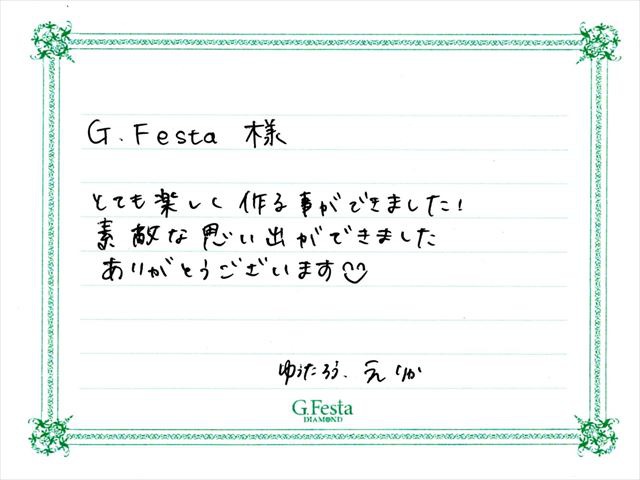 G.Festa 様
とても楽しく作る事ができました!
素敵な思い出ができました
ありがとうございます
ゆうたろう、えりか
G.Festa
DIAMOND